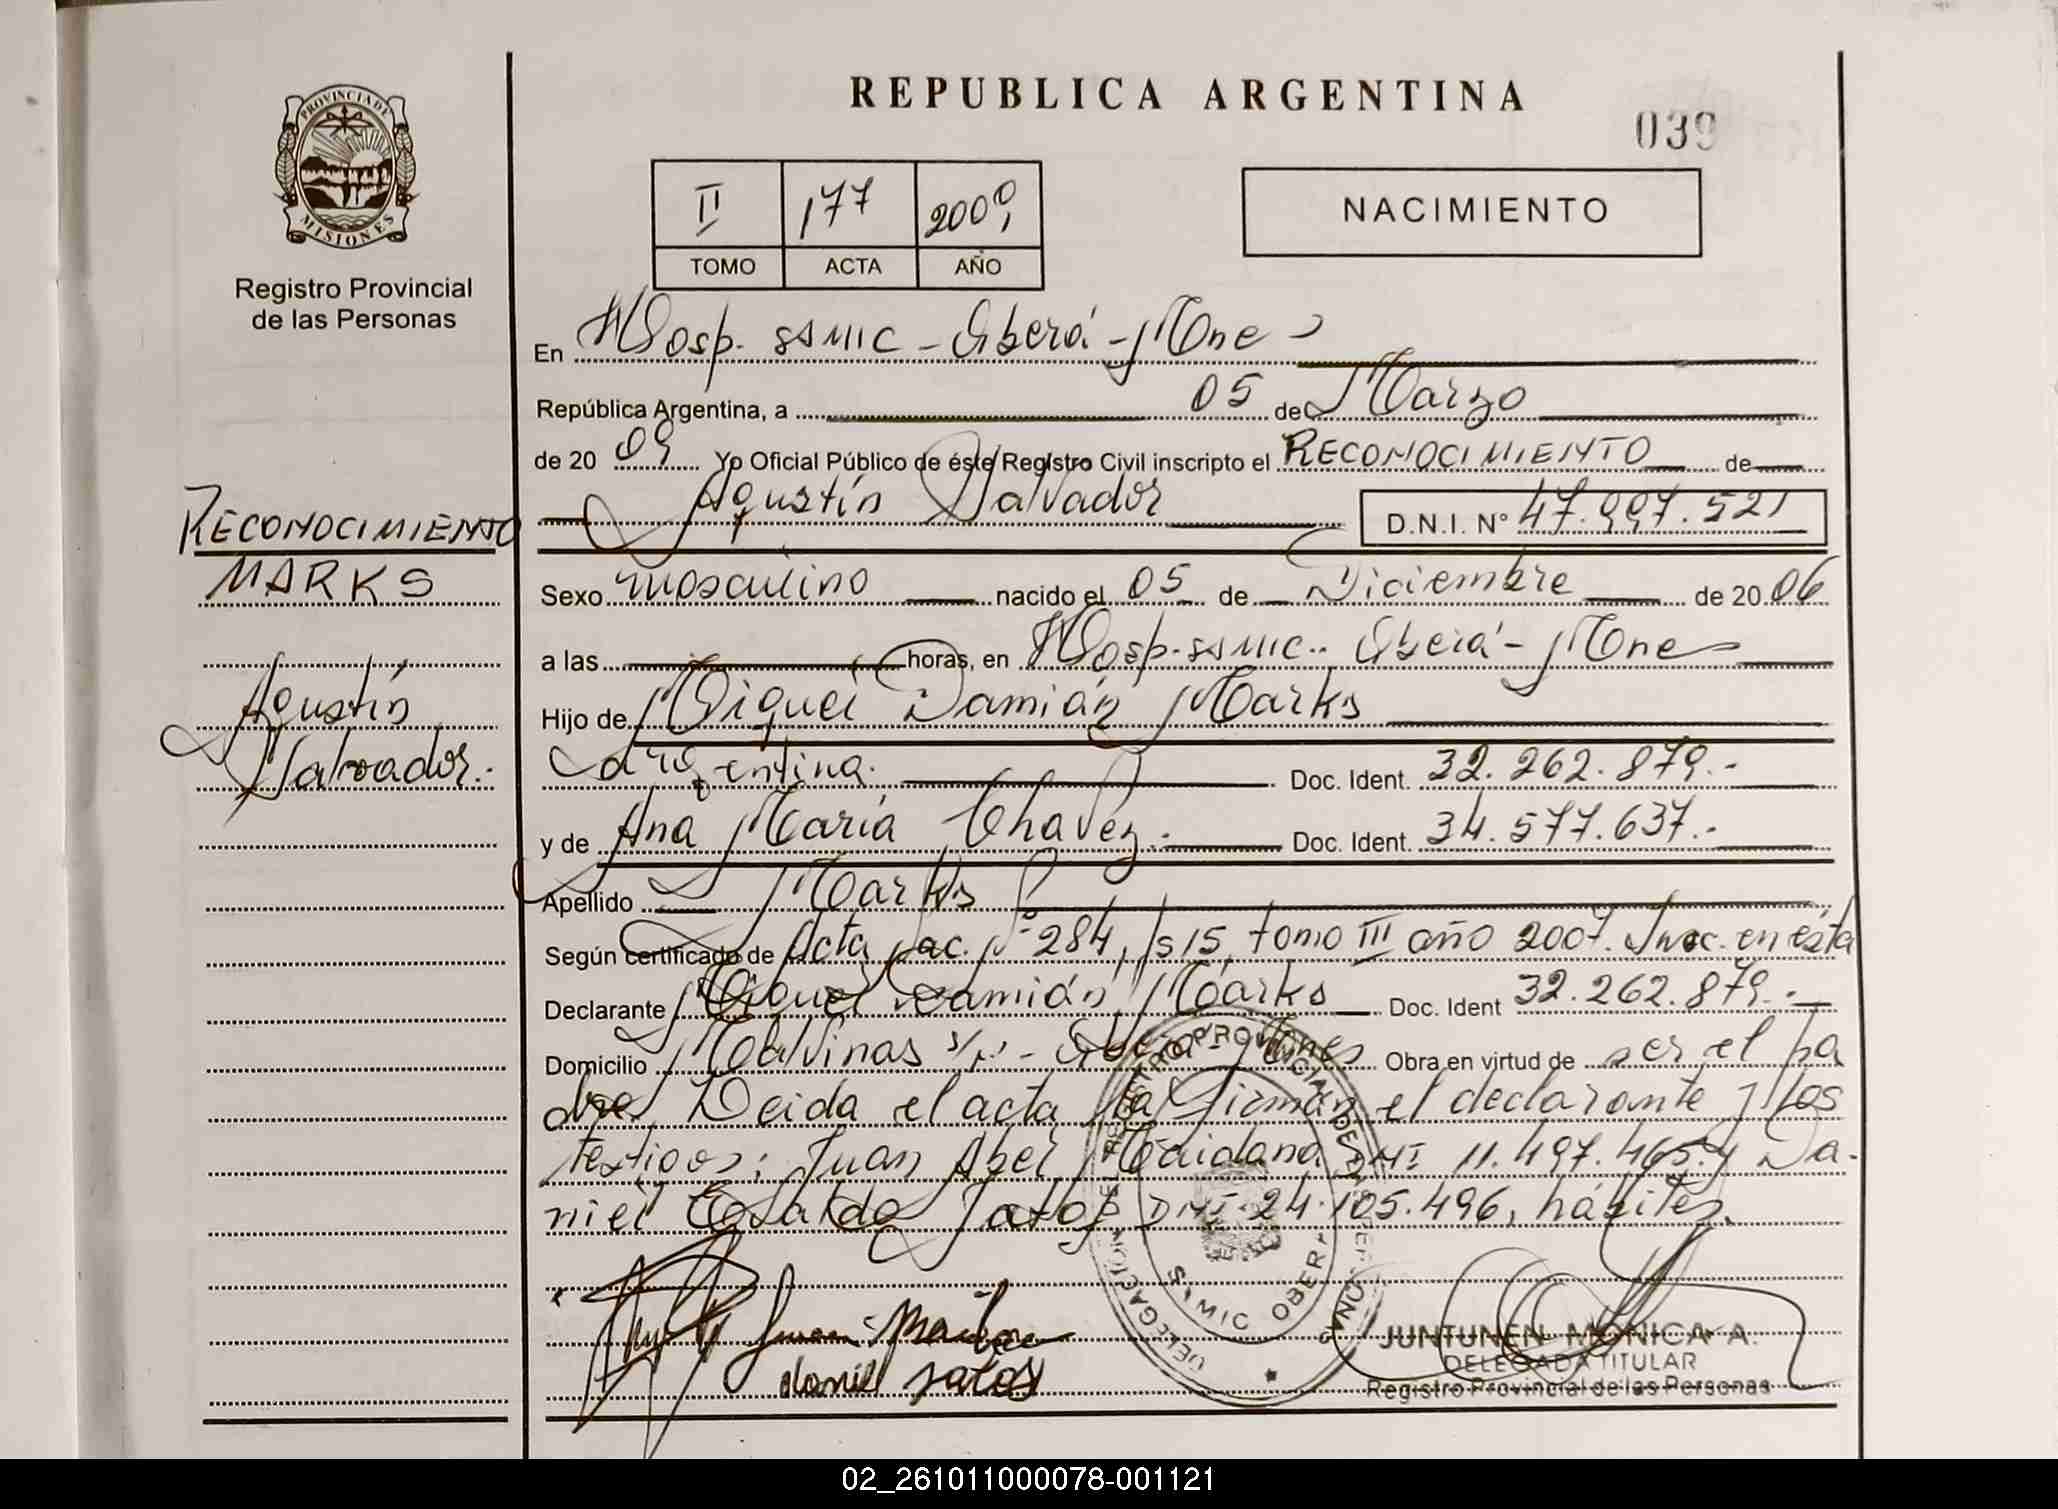 REPUBLICA ARGENTINA
039
PROVINCIA DE
MISIONES
Registro Provincial
de las Personas
II 177 2009
TOMO ACTA AÑO
NACIMIENTO
En Hosp. SAMIC - Oberá - Mnes
República Argentina, a 05 de Marzo
de 20 09 Yo Oficial Público de éste Registro Civil inscripto el RECONOCIMIENTO de
Agustín Salvador D.N.I. N° 47.997.521
RECONOCIMIENTO
MARKS
Agustín
Salvador.-
Sexo masculino nacido el 05 de Diciembre de 20 06
a las horas, en Hosp. SAMIC.. Oberá - Mnes
Hijo de Miguel Damián Marks
Argentina. Doc. Ident. 32.262.879.-
y de Ana María Chavez.- Doc. Ident. 34.577.637.-
Apellido Marks
Según certificado de Acta Nac. N° 284, Fs 15, tomo III año 2007. Insc. en ésta
Declarante Miguel Damián Marks Doc. Ident 32.262.879.-
Domicilio Malvinas s/n - Oberá - Mnes Obra en virtud de ser el pa
dre. Leída el acta la firman el declarante y los
testigos: Juan Abel Maidana DNI 11.497.465 y Da-
niel Osvaldo DNI 24.105.496, hábiles.
REGISTRO PROVINCIAL DE LAS PERSONAS
DELEGACION
SAMIC OBERA
daniel
JUNTUNEN MONICA A.
DELEGADA TITULAR
Registro Provincial de las Personas
02_261011000078-001121